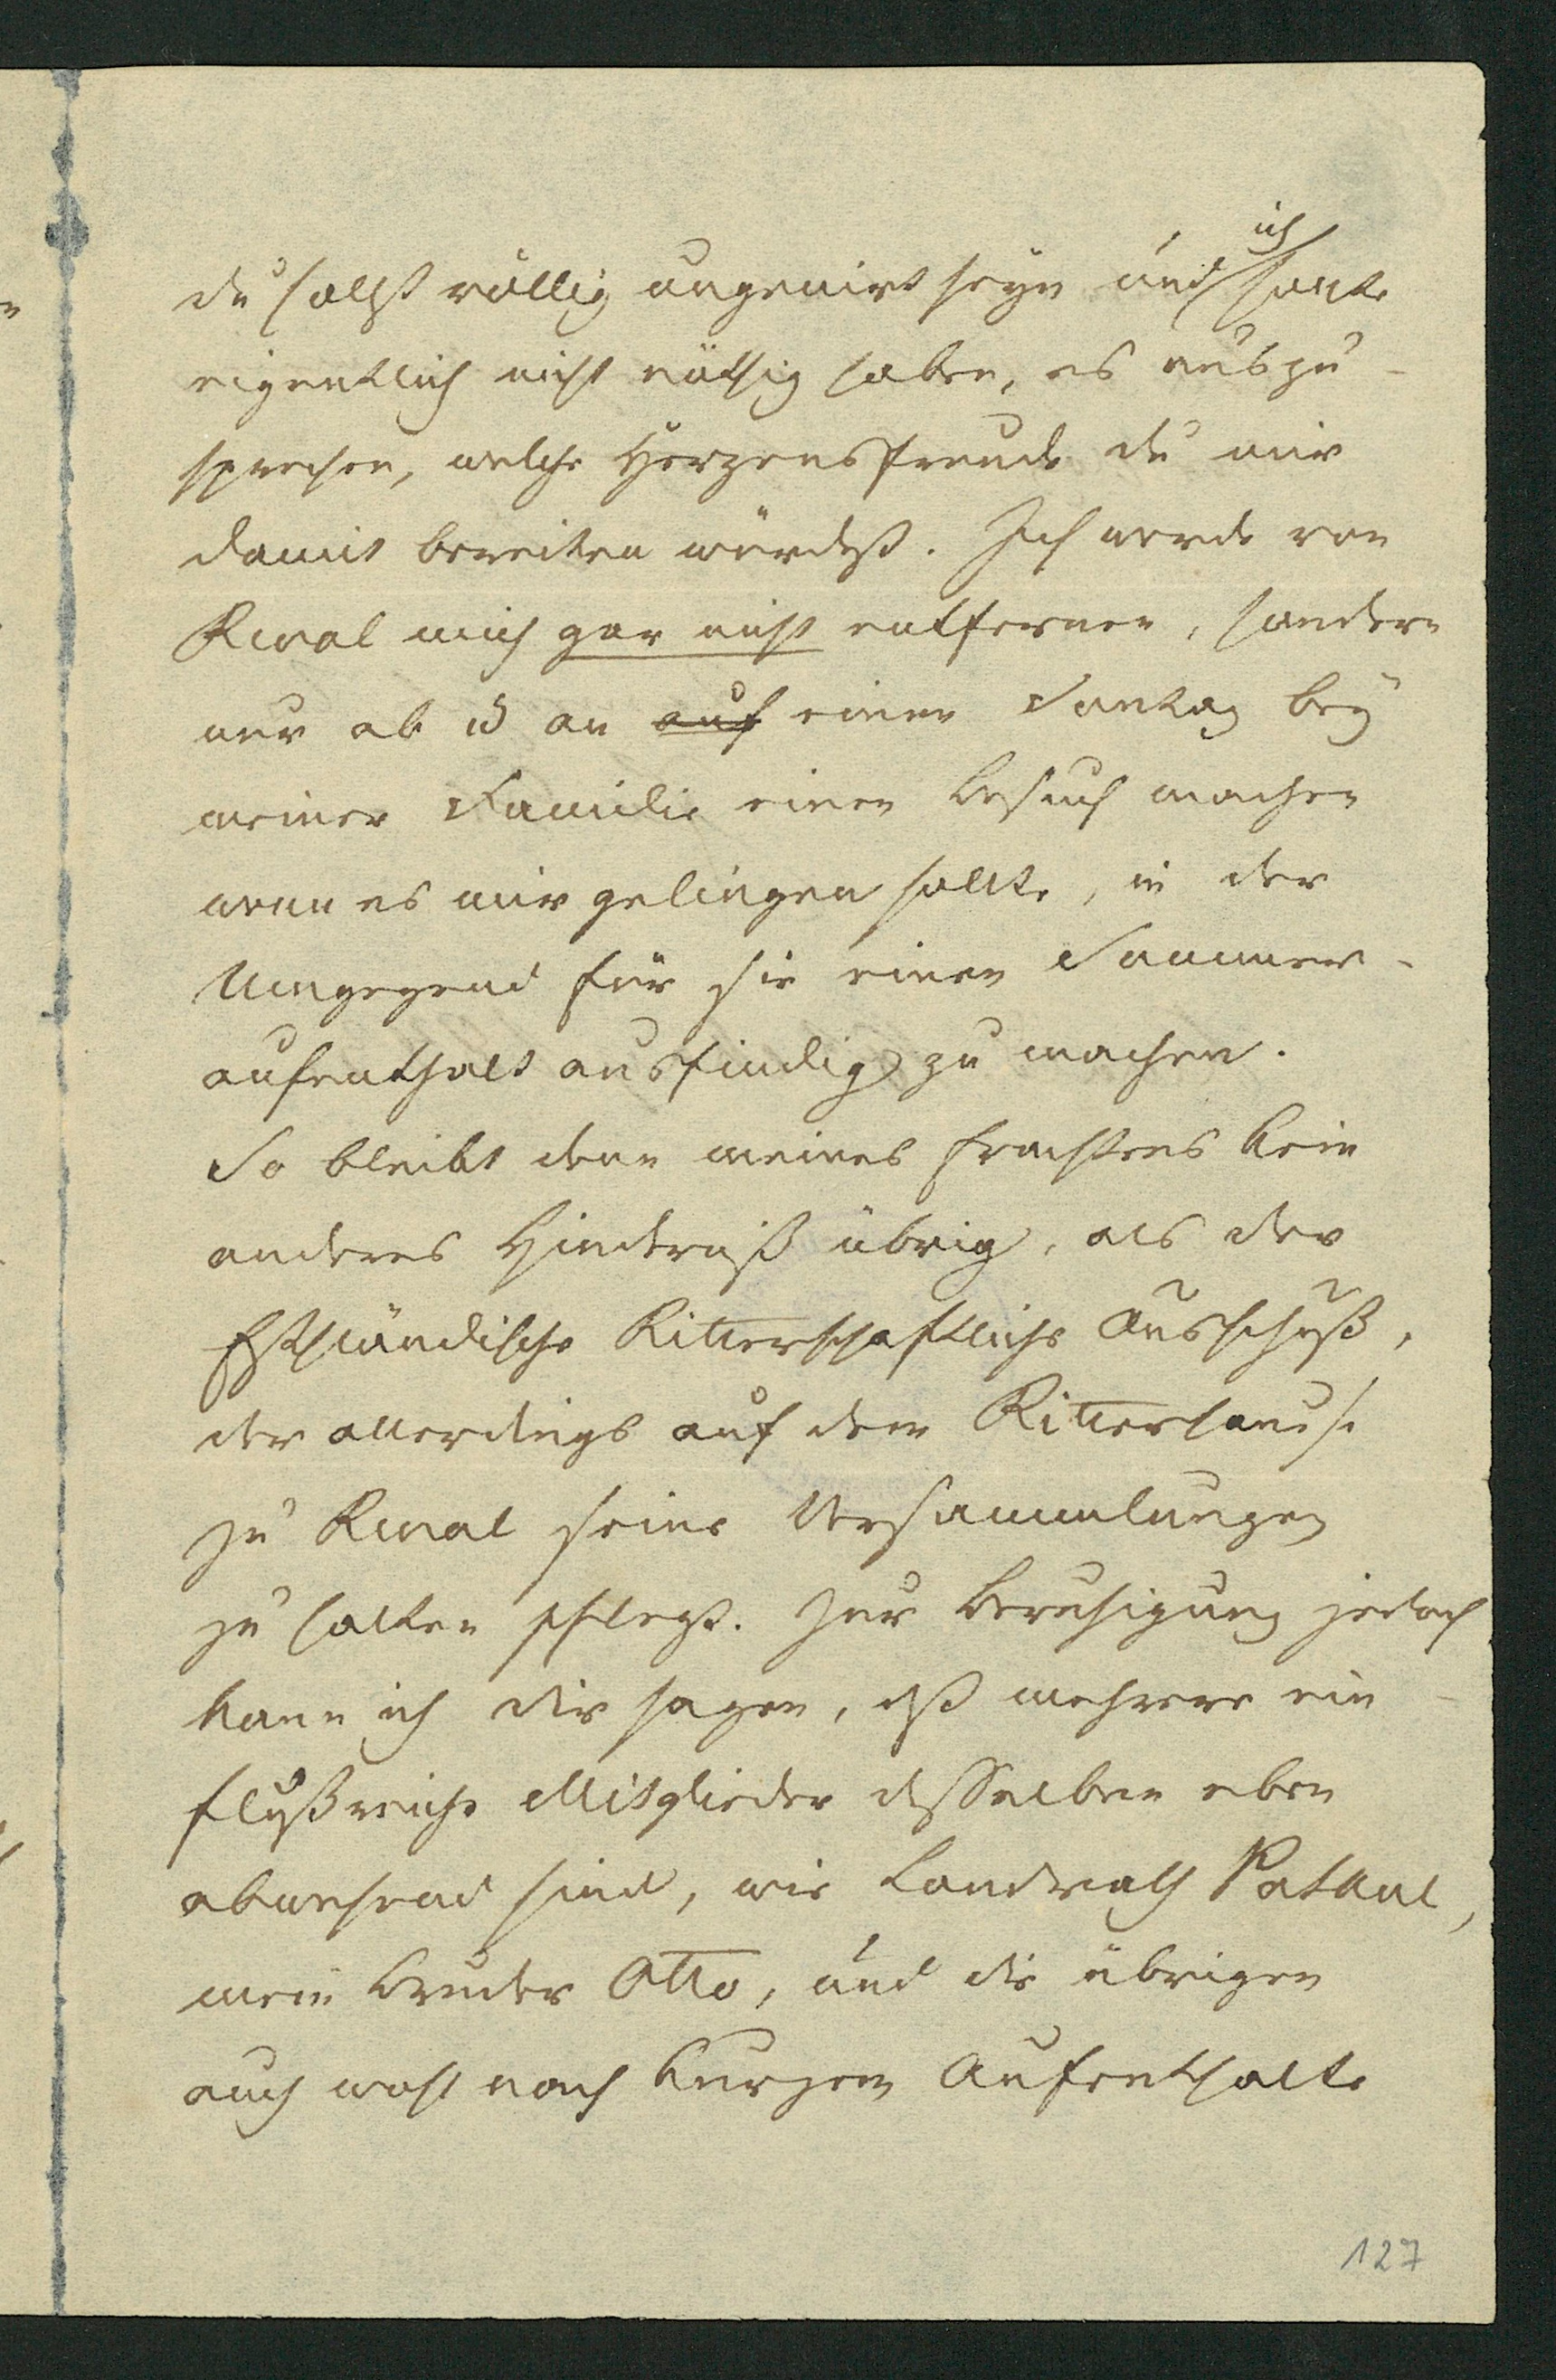 du sollst völlig ungenirt seyn und ich sollte
eigentlich nicht nöthig haben, es auszu-
sprechen, welche Herzensfreude du mir
damit bereiten würdest. Ich werde von
Reval mich gar nicht entfernen, sondern
nur ab u an auf einen Sontag bey
meiner Familie einen Besuch machen
wenn es mir gelingen sollte, in der
Umgegend für sie einen Sommer-
aufenthalt ausfindig zu machen.
So bleibt denn meines Erachtens kein
anderes Hinderniß übrig, als der
Esthländische Ritterschaftliche Ausschuß,
der allerdings auf dem Ritterhause
zu Reval seine Versammlungen
zu halten pflegt. Zur Beruhigung jedoch
kann ich dir sagen, dß mehrere ein-
flußreiche Mitglieder desselben eben
abwesend sind, wie Landrath Patkul,
mein Bruder Otto, und die übrigen
auch wohl nach kurzem Aufenthalte
127